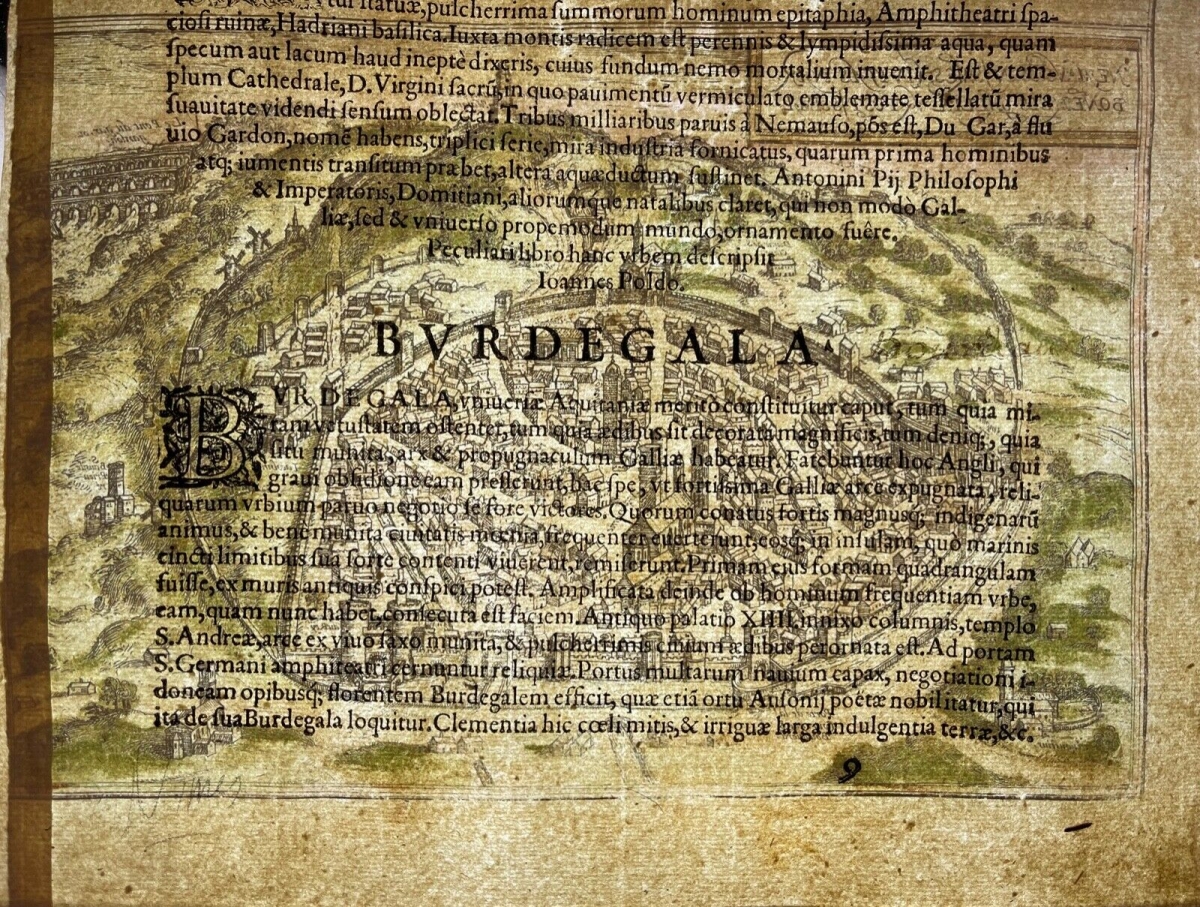 tui statuæ,pulcherrima summorum hominum epitaphia, Amphitheatri spa-
ciosi ruinæ,Hadriani basilica.Iuxta montis radicem est perennis & lympidissima aqua, quam
specum aut lacum haud ineptè dixeris, cuius fundum nemo mortalium inuenit. Est & tem-
plum Cathedrale,D.Virgini sacrū,in quo pauimentū vermiculato emblemate tessellatū mira
suauitate videndi sensum oblectat.Tribus milliaribus paruis à Nemauso,pōs est,Du Gar,à flu
uio Gardon,nomē habens,triplici serie,mira industria fornicatus, quarum prima hominibus
atq; iumentis transitum præbet,altera aquæductum sustinet. Antonini Pij Philosophi
& Imperatoris,Domitiani,aliorumque natalibus claret,qui non modò Gal-
liæ,sed & vniuerso propemodum mundo,ornamento fuêre.
Peculiari libro hanc vrbem descripsit
Ioannes Poldo.
BVRDEGALA
BVRDEGALA,vniuersæ Aquitaniæ meritò constituitur caput, tum quia mi-
ram vetustatem ostentet,tum quia ædibus sit decorata magnificis,tum deniq;, quia
situ munita, arx & propugnaculum Galliæ habeatur. Fatebuntur hoc Angli, qui
graui obsidione eam presserunt,hac spe, vt fortissima Galliæ arce expugnata, reli-
quarum vrbium paruo negotio se fore victores.Quorum conatus fortis magnusq; indigenarū
animus,& bene munita ciuitatis mœnia,frequenter euerterunt,eosq; in insulam, quò marinis
cincti limitibus sua sorte contenti viuerent,remiserunt.Primam eius formam quadrangulam
fuisse,ex muris antiquis conspici potest. Amplificata deinde ob hominum frequentiam vrbe,
eam,quam nunc habet,consecuta est faciem.Antiquo palatio XIIII.innixo columnis,templo
S.Andreæ,arce ex viuo saxo munita,& pulcherrimis ciuium ædibus perornata est.Ad portam
S.Germani amphiteatri cernuntur reliquiæ.Portus multarum nauium capax, negotiationi i-
doneam opibusq; florentem Burdegalem efficit, quæ etiā ortu Ausonij poëtæ nobilitatur,qui
ita de sua Burdegala loquitur.Clementia hic cœli mitis,& irriguæ larga indulgentia terræ,&c.
9